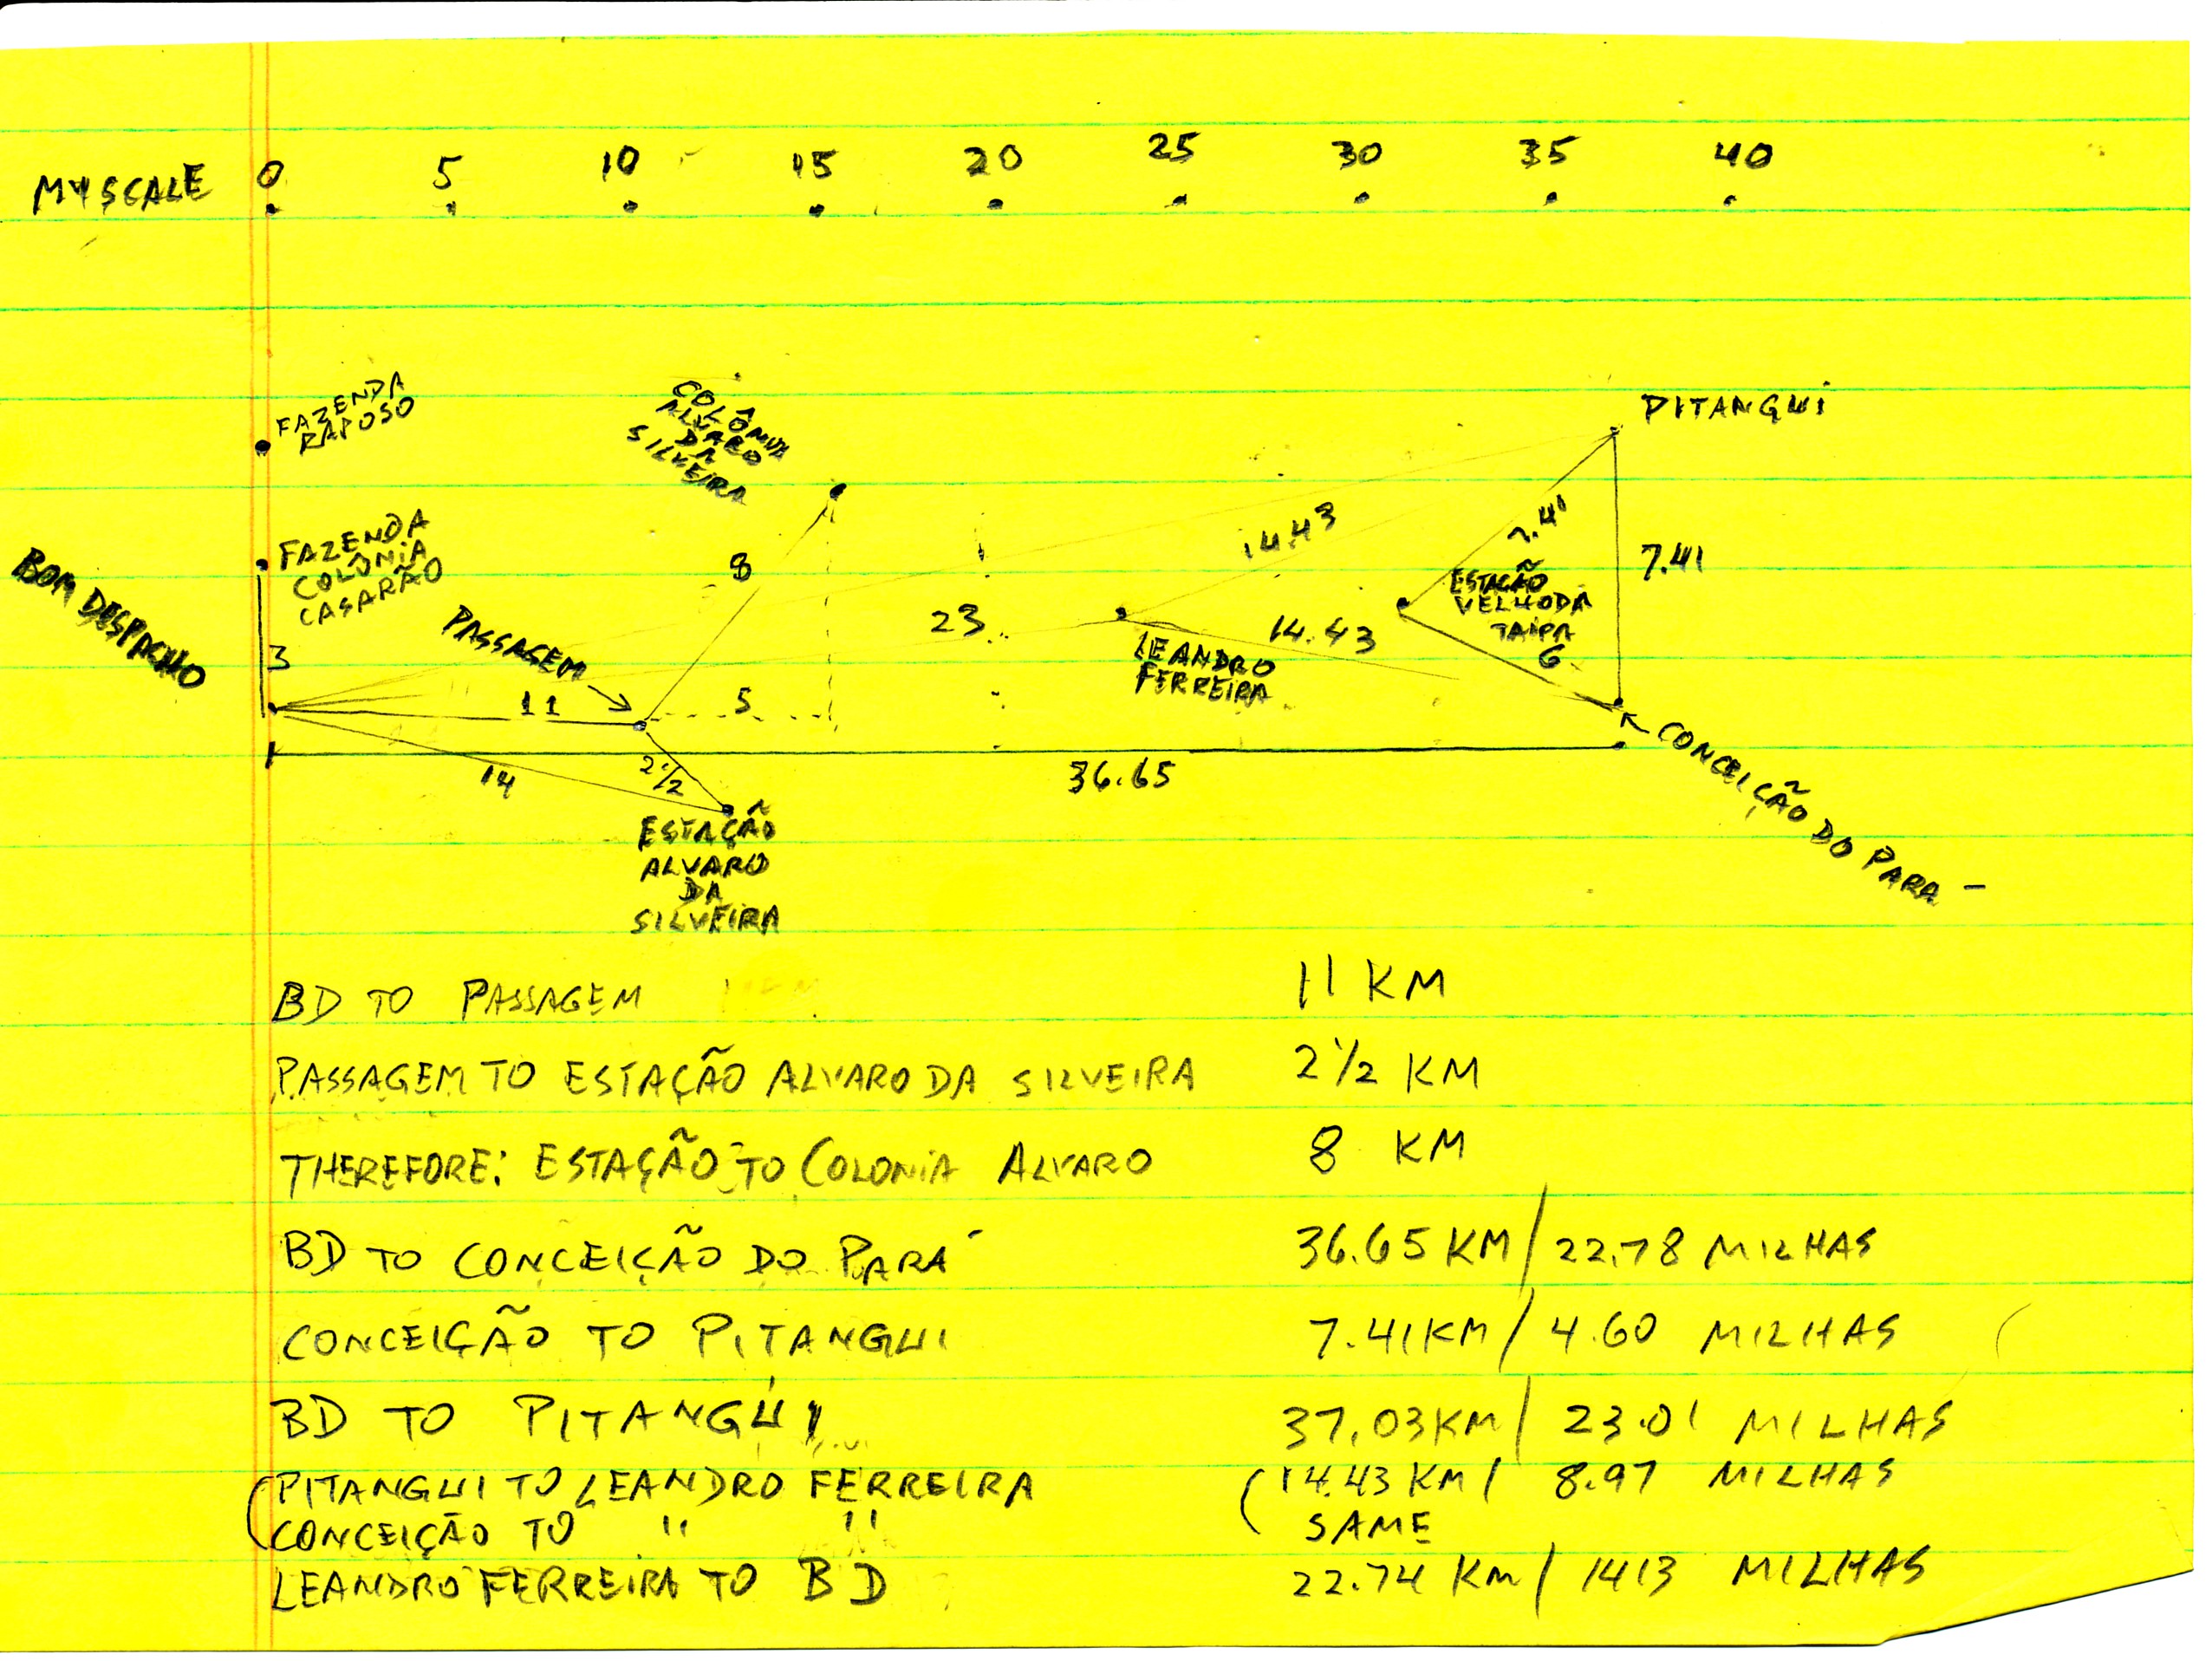 MY SCALE 0 5 10 15 20 25 30 35 40
FAZENDA
RAPOSO
COLÔNIA
ALVARO
DA
SILVEIRA
PITANGUI
FAZENDA
COLÔNIA
CASARÃO
BOM DESPACHO
3
PASSAGEM
11
8
5
23
14.43
14.43
LEANDRO
FERREIRA
7.41
ESTAÇÃO
VELHO DA
TAIPA
6
7.41
CONCEIÇÃO DO PARÁ
14
2 1/2
36.65
ESTAÇÃO
ALVARO
DA
SILVEIRA
BD TO PASSAGEM 11 KM
PASSAGEM TO ESTAÇÃO ALVARO DA SILVEIRA 2 1/2 KM
THEREFORE: ESTAÇÃO TO COLONIA ALVARO 8 KM
BD TO CONCEIÇÃO DO PARÁ 36.65 KM / 22.78 MILHAS
CONCEIÇÃO TO PITANGUI 7.41 KM / 4.60 MILHAS
BD TO PITANGUI 37.03 KM / 23.01 MILHAS
(PITANGUI TO LEANDRO FERREIRA (14.43 KM / 8.97 MILHAS
CONCEIÇÃO TO " " SAME
LEANDRO FERREIRA TO BD 22.74 KM / 1413 MILHAS